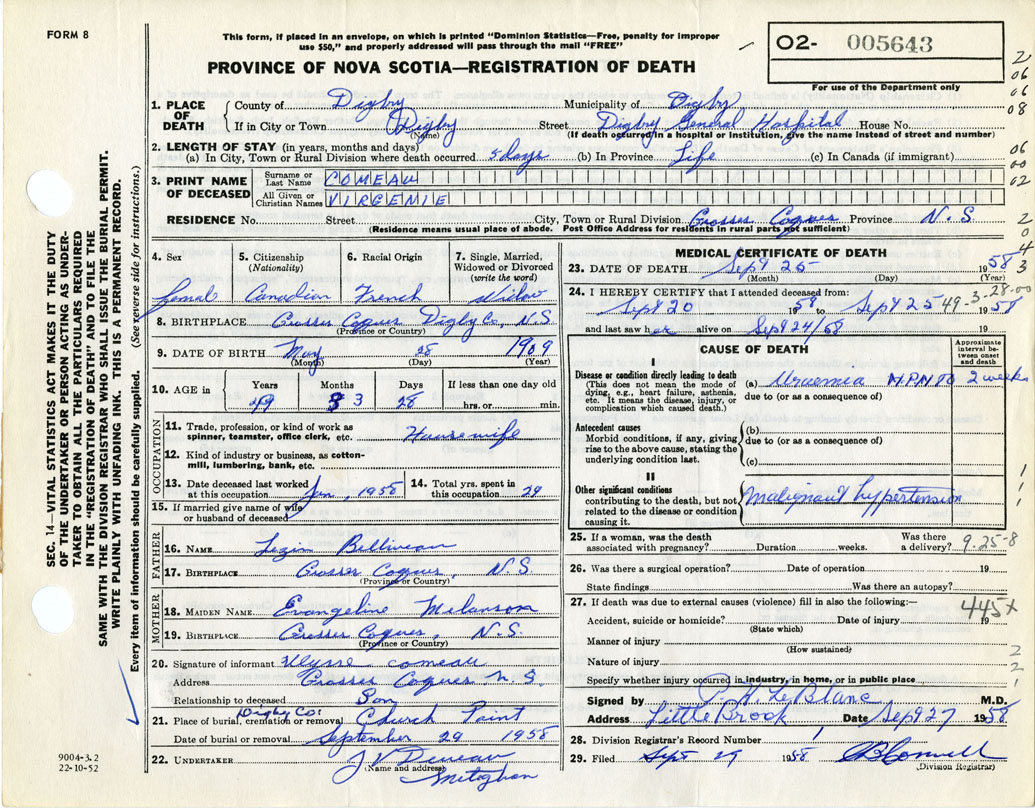 FORM 8
This form, if placed in an envelope, on which is printed "Dominion Statistics—Free, penalty for improper
use $50," and properly addressed will pass through the mail "FREE"
02- 005643
For use of the Department only
PROVINCE OF NOVA SCOTIA—REGISTRATION OF DEATH
1. PLACE OF DEATH County of Digby Municipality of Digby
If in City or Town Digby Street Digby General Hospital House No.
(Name) (If death occurred in a hospital or institution, give the name instead of street and number)
2. LENGTH OF STAY (in years, months and days)
(a) In City, Town or Rural Division where death occurred 5 days (b) In Province Life (c) In Canada (if immigrant)
3. PRINT NAME OF DECEASED Surname or Last Name COMEAU
All Given or Christian Names VIRGEMIE
RESIDENCE No. Street City, Town or Rural Division Grosses Coques Province N.S.
(Residence means usual place of abode. Post Office Address for residents in rural parts not sufficient)
4. Sex 5. Citizenship (Nationality) 6. Racial Origin 7. Single, Married, Widowed or Divorced (write the word)
femal Canadian French Widow
8. BIRTHPLACE Grosses Coques Digby Co, N.S.
(Province or Country)
9. DATE OF BIRTH May 28 1909
(Month) (Day) (Year)
10. AGE in Years Months Days If less than one day old
49 3 28 hrs. or min.
OCCUPATION
11. Trade, profession, or kind of work as spinner, teamster, office clerk, etc. Housewife
12. Kind of industry or business, as cotton-mill, lumbering, bank, etc.
13. Date deceased last worked at this occupation Jan, 1958 14. Total yrs. spent in this occupation 29
15. If married give name of wife or husband of deceased
FATHER
16. NAME Belliveau
17. BIRTHPLACE Grosses Coques, N.S.
(Province or Country)
MOTHER
18. MAIDEN NAME Evangeline Melanson
19. BIRTHPLACE Grosses Coques, N.S.
(Province or Country)
20. Signature of informant Ulysse Comeau
Address Grosses Coques N.S.
Relationship to deceased Son
21. Place of burial, cremation or removal Digby Co: Church Point
Date of burial or removal September 29 1958
22. UNDERTAKER J V
(Name and address) Meteghan
MEDICAL CERTIFICATE OF DEATH
23. DATE OF DEATH Sept 25 1958
(Month) (Day) (Year)
24. I HEREBY CERTIFY that I attended deceased from:
Sept 20 1958 to Sept 25 1958
49-3-28-00
and last saw her alive on Sept 24/58 19
CAUSE OF DEATH
Approximate interval between onset and death
I
Disease or condition directly leading to death
(This does not mean the mode of dying, e.g., heart failure, asthenia, etc. It means the disease, injury, or complication which caused death.)
(a) Uraemia N.P.N 2 weeks
due to (or as a consequence of)
Antecedent causes
Morbid conditions, if any, giving rise to the above cause, stating the underlying condition last.
(b)
due to (or as a consequence of)
(c)
II
Other significant conditions
contributing to the death, but not related to the disease or condition causing it.
Malignant hypertension
25. If a woman, was the death associated with pregnancy? Duration weeks. Was there a delivery?
9-25-8
26. Was there a surgical operation? Date of operation 19
State findings Was there an autopsy?
27. If death was due to external causes (violence) fill in also the following:—
445x
Accident, suicide or homicide? Date of injury 19
(State which)
Manner of injury
(How sustained)
Nature of injury
Specify whether injury occurred in industry, in home, or in public place
Signed by P. H. LeBlanc M.D.
Address Little Brook Date Sept 27 1958
28. Division Registrar's Record Number 1
29. Filed Sept 29 1958
(Division Registrar)
SEC. 14—VITAL STATISTICS ACT MAKES IT THE DUTY
OF THE UNDERTAKER OR PERSON ACTING AS UNDER-
TAKER TO OBTAIN ALL THE PARTICULARS REQUIRED
IN THE "REGISTRATION OF DEATH" AND TO FILE THE
SAME WITH THE DIVISION REGISTRAR WHO SHALL ISSUE THE BURIAL PERMIT.
WRITE PLAINLY WITH UNFADING INK. THIS IS A PERMANENT RECORD.
Every item of information should be carefully supplied. (See reverse side for instructions.)
9004-3.2
22-10-52
2
06
06
08
06
00
02
2
0
4
3
1
1
1
2
2
1